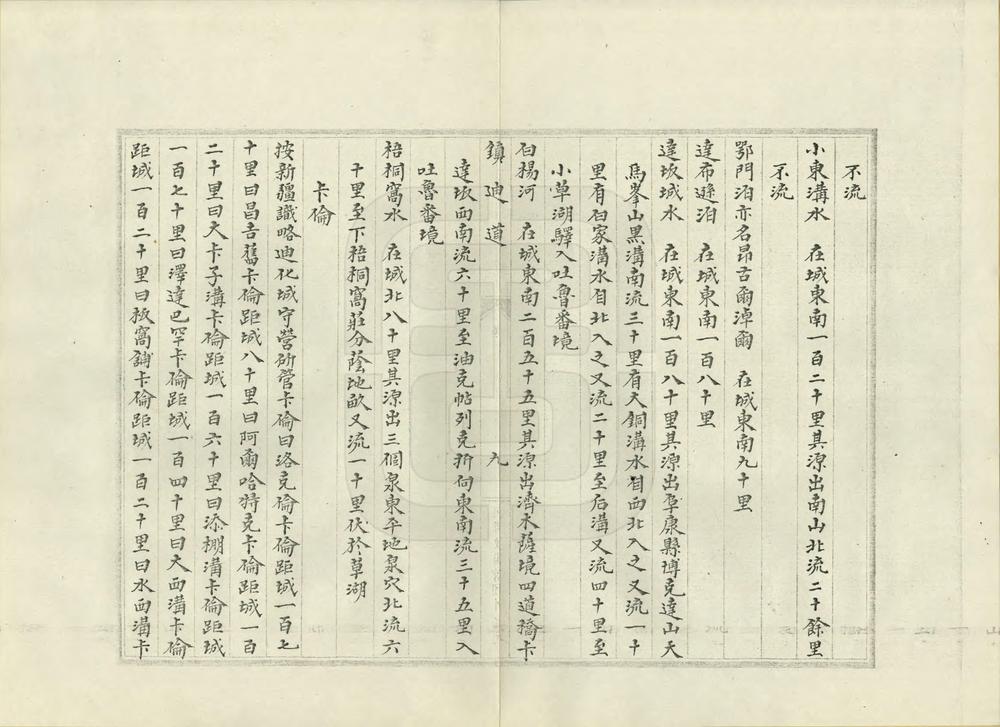 不流
小東溝水　在城東南一百二十里其源出南山北流二十餘里
不流
鄂門泊亦名昂吉爾淖爾　在城東南九十里
達布遜泊　在城東南一百八十里
達坂城水　在城東南一百八十里其源出阜康縣博克達山天
馬峯山黑溝南流三十里有大銅溝水自西北入之又流一十
里有白家溝水自北入之又流二十里至后溝又流四十里至
小草湖驛入吐魯番境
白楊河　在城東南二百五十五里其源出濟木薩境四道橋卡
鎮迪道　九
達坂西南流六十里至油克帖列克折向東南流三十五里入
吐魯番境
梧桐窩水　在城北八十里其源出三個泉東平地泉穴北流六
十里至下梧桐窩莊分蔭地畝又流一十里伏於草湖
卡倫
按新疆識略迪化城守營所管卡倫曰洛克倫卡倫距城一百七
十里曰昌吉舊卡倫距城八十里曰阿爾哈特克卡倫距城一百
二十里曰大卡子溝卡倫距城一百六十里曰添棚溝卡倫距城
一百七十里曰澤達巴罕卡倫距城一百四十里曰大西溝卡倫
距城一百二十里曰板窩鋪卡倫距城一百二十里曰水西溝卡